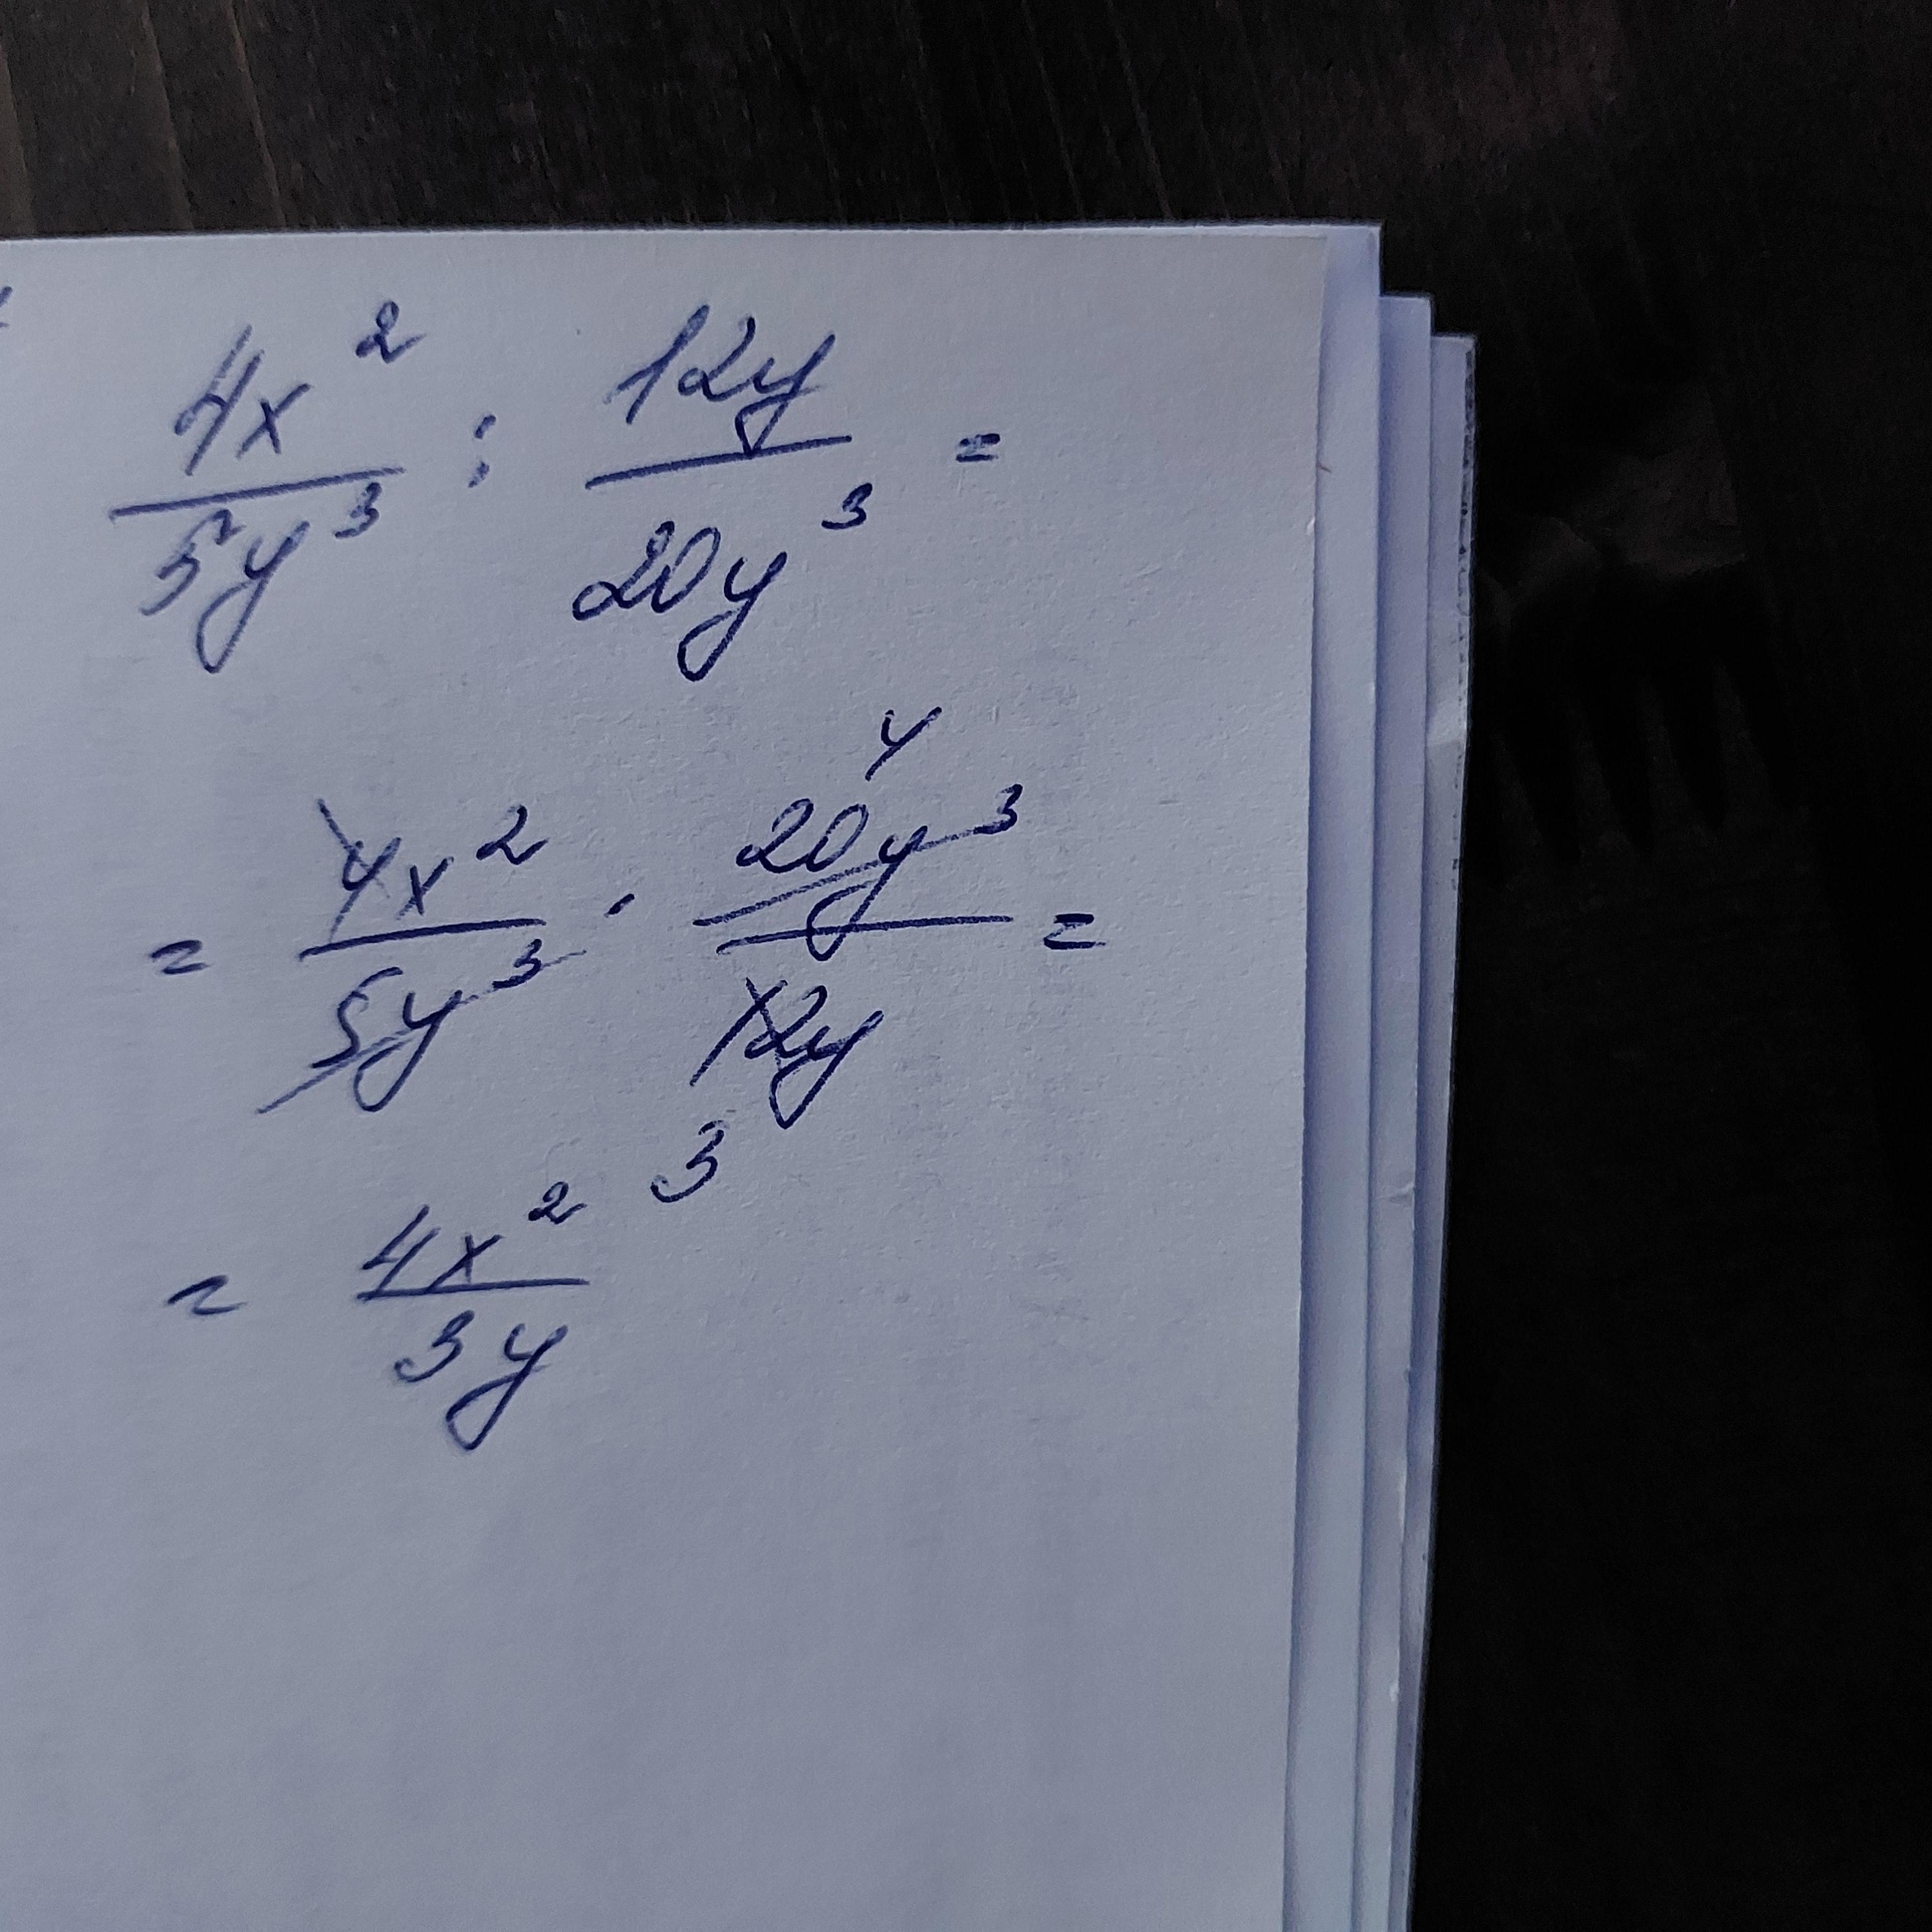 4x² / 5y³ : 12y / 20y³ =
4
= 4x² / 5y³ · 20y³ / 12y =
3
= 4x² / 3y